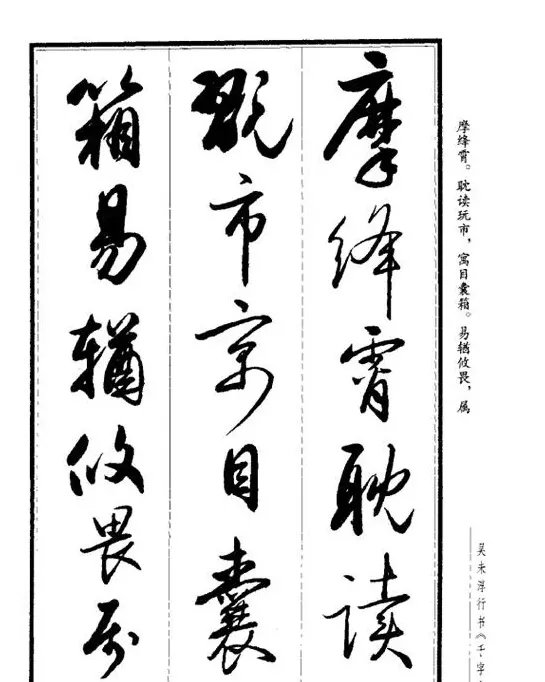 摩绛霄。耽读玩市，寓目囊箱。易𬨎攸畏，属
吴未淳行书《千字
摩绛霄耽读
翫市寓目囊
箱易輶攸畏属